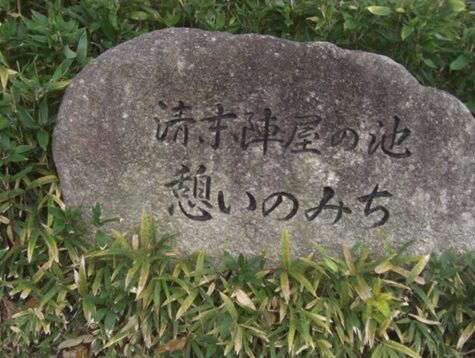 清末陣屋の池
憩いのみち